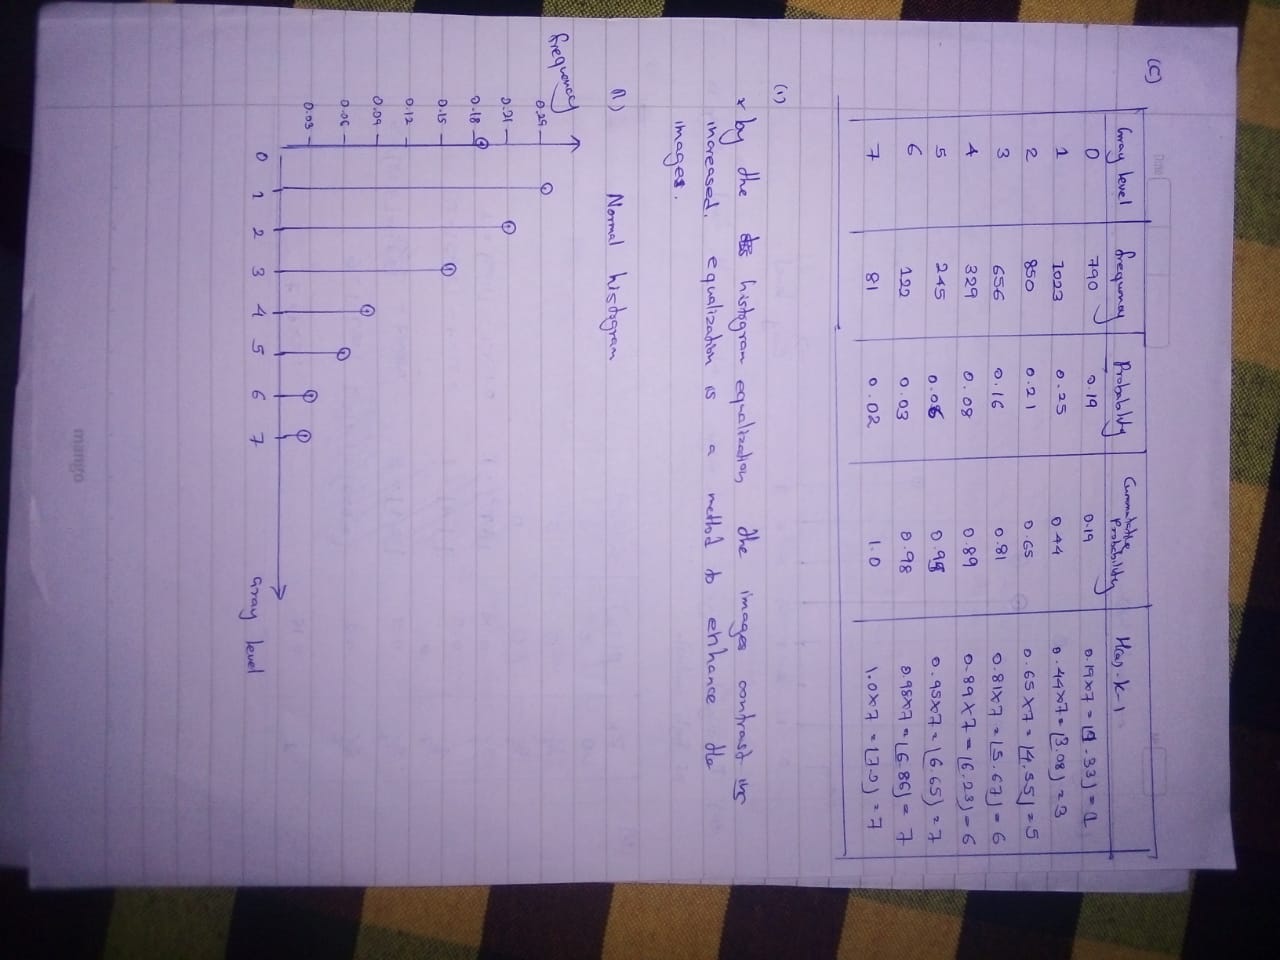 (C)
Gray level frequency Probability Cummulative probability H(a).K-1
0 790 0.19 0.19 0.19x7 = (1.33) = 1
1 1023 0.25 0.44 0.44x7 = (3.08) = 3
2 850 0.21 0.65 0.65x7 = (4.55) = 5
3 656 0.16 0.81 0.81x7 = (5.67) = 6
4 329 0.08 0.89 0.89x7 = (6.23) = 6
5 245 0.06 0.95 0.95x7 = (6.65) = 7
6 122 0.03 0.98 0.98x7 = (6.86) = 7
7 81 0.02 1.0 1.0x7 = (7.0) = 7
(i)
* by the histogram equalization the images contrast is
increased. equalization is a method to enhance the
images.
(ii) Normal histogram
frequency
0.24
0.21
0.18
0.15
0.12
0.09
0.06
0.03
0 1 2 3 4 5 6 7 Gray level
mango